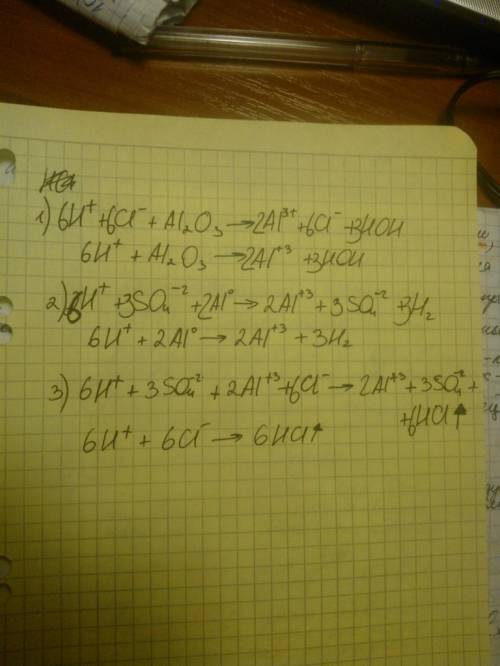 1) 6H⁺ + 6Cl⁻ + Al₂O₃ → 2Al³⁺ + 6Cl⁻ + 3HOH
6H⁺ + Al₂O₃ → 2Al⁺³ + 3HOH
2) 6H⁺ + 3SO₄⁻² + 2Al⁰ → 2Al⁺³ + 3SO₄⁻² + 3H₂
6H⁺ + 2Al⁰ → 2Al⁺³ + 3H₂
3) 6H⁺ + 3SO₄⁻² + 2Al⁺³ + 6Cl⁻ → 2Al⁺³ + 3SO₄⁻² +
+ 6HCl↑
6H⁺ + 6Cl⁻ → 6HCl↑